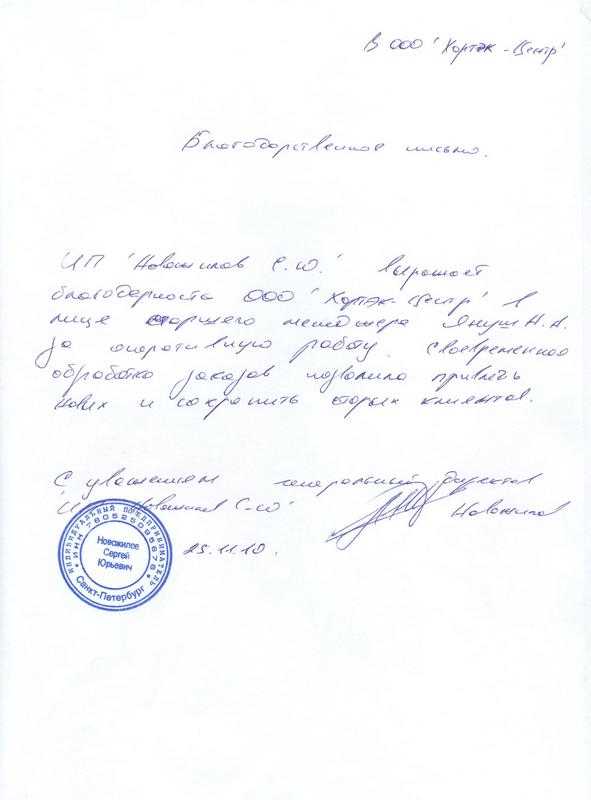 В ООО 'Хортэк-Центр'
Благодарственное письмо.
ИП 'Новожилов С.Ю.' выражает
благодарность ООО 'Хортэк-Центр' в
лице старшего менеджера Януш Н.А.
за оперативную работу. Своевременная
обработка заказов позволила привлечь
новых и сохранить старых клиентов.
С уважением генеральный директор
ИП 'Новожилов С.Ю.' Новожилов
25.11.10.
ИНДИВИДУАЛЬНЫЙ ПРЕДПРИНИМАТЕЛЬ
Новожилов
Сергей
Юрьевич
Санкт-Петербург